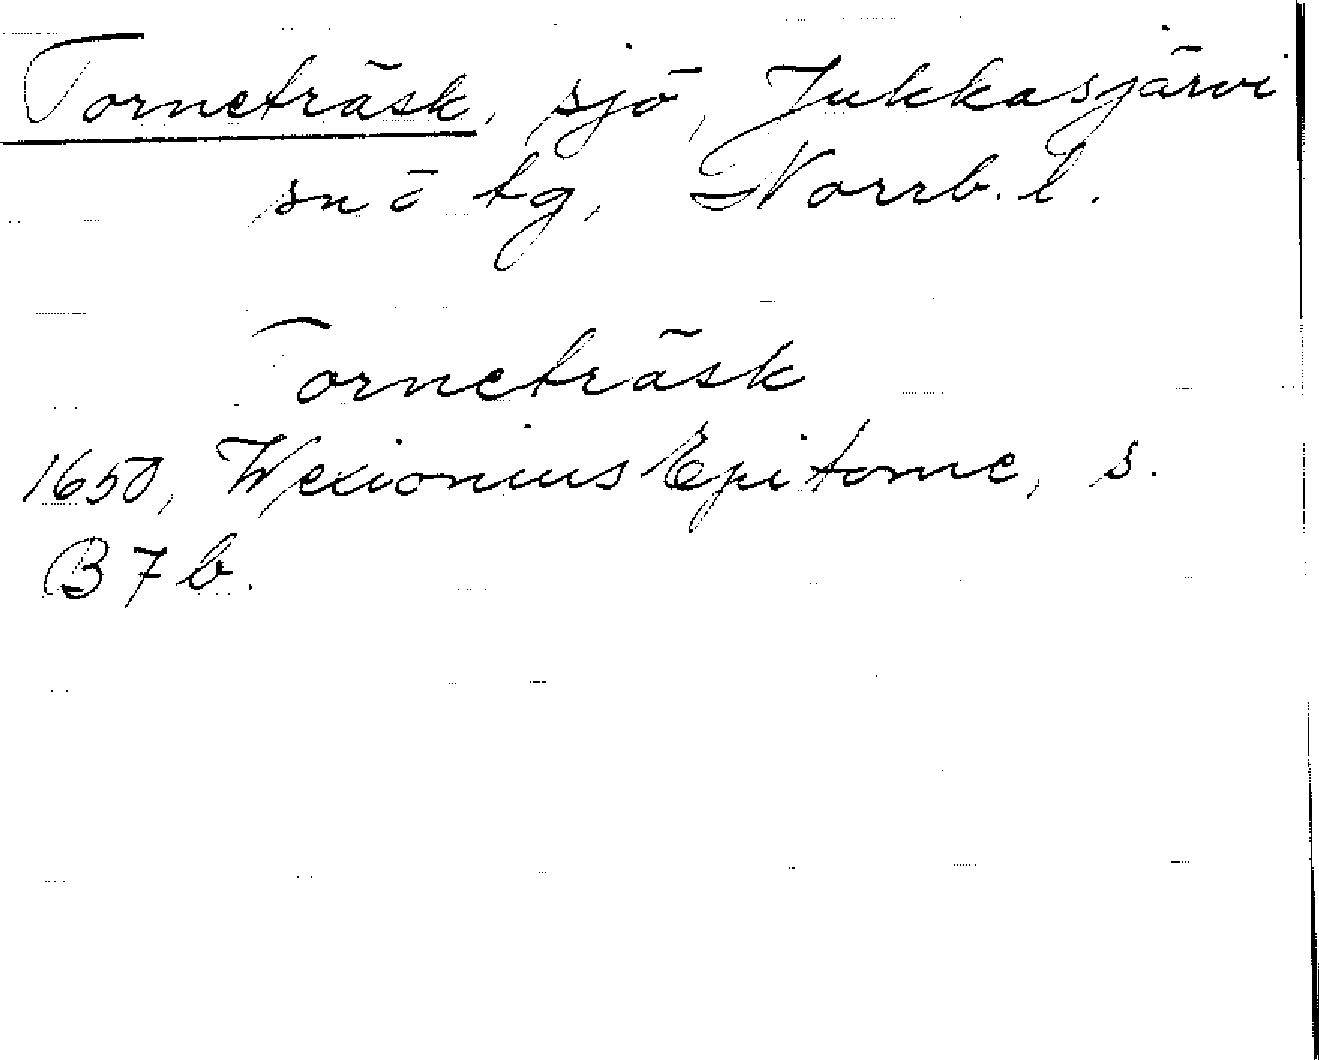 Torneträsk, sjö, Jukkasjärvi
sn o tg, Norrb. l.
Torneträsk
1650, Wexionius Epitome, s.
B7b.